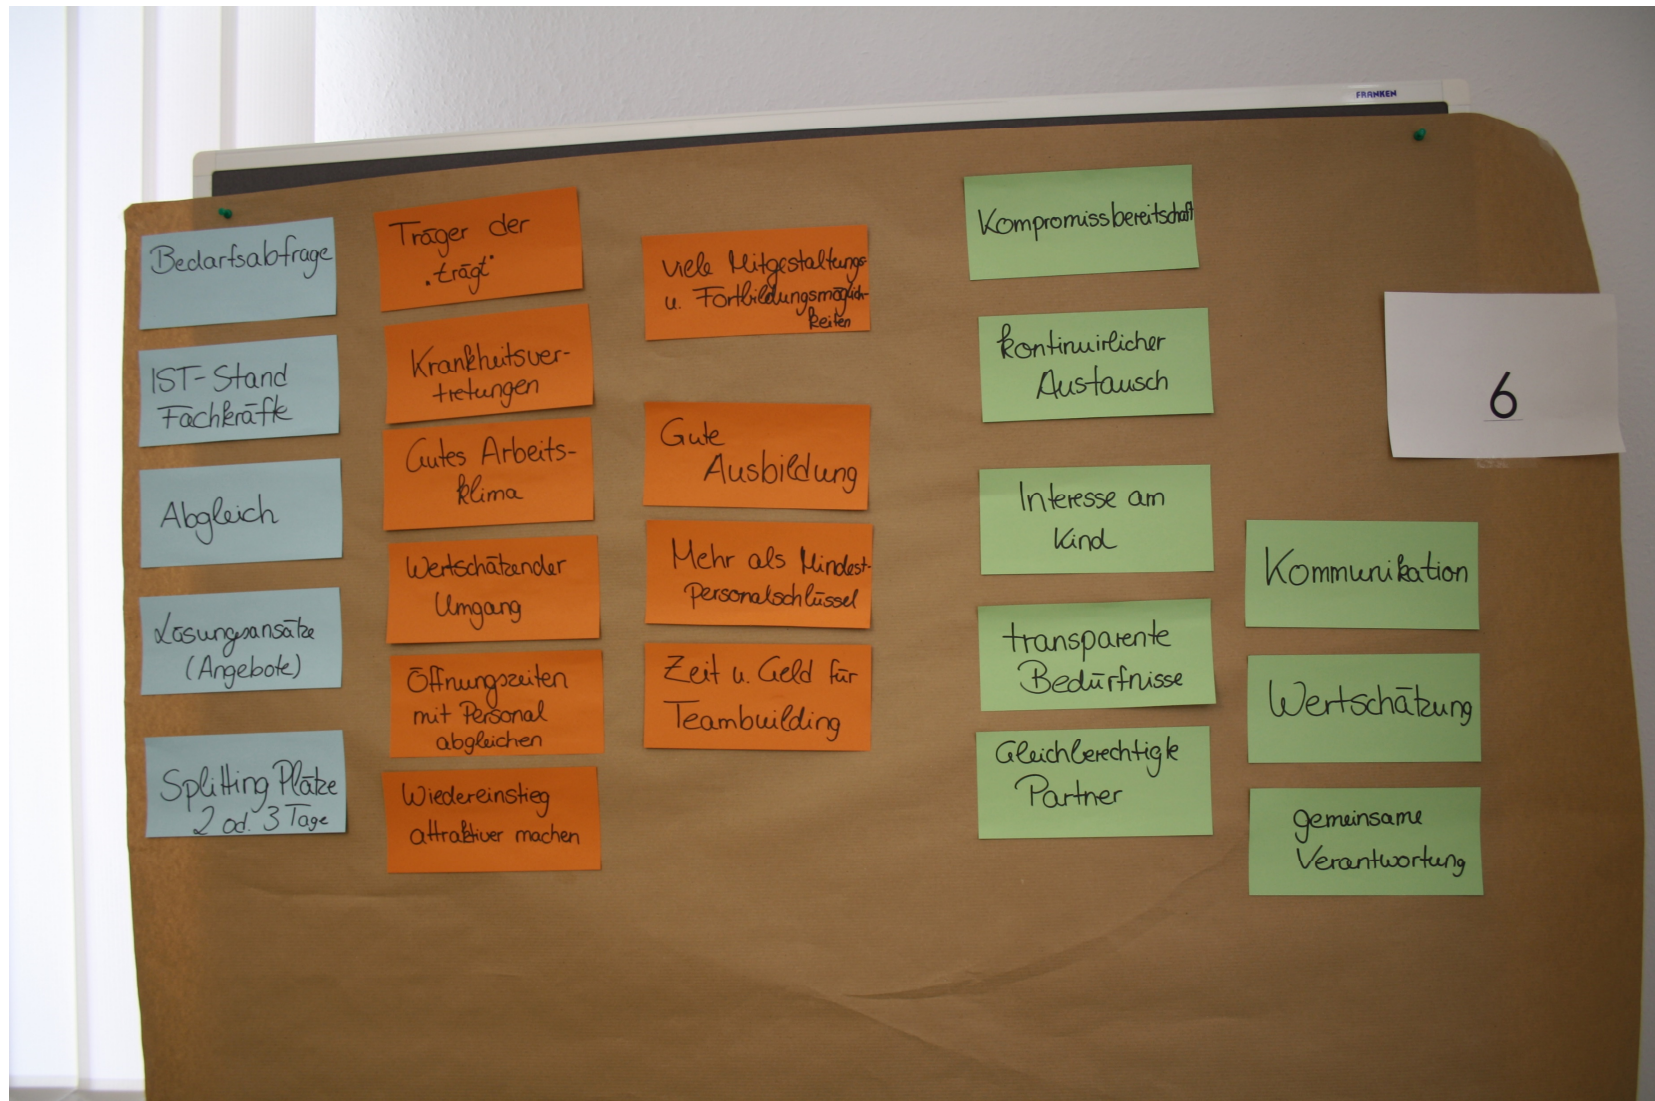 FRANKEN
Bedarfsabfrage
IST-Stand
Fachkräfte
Abgleich
Lösungsansätze
(Angebote)
Splitting Plätze
2 od. 3 Tage
Träger der
"trägt"
Krankheitsver-
tretungen
Gutes Arbeits-
klima
Wertschätzender
Umgang
Öffnungszeiten
mit Personal
abgleichen
Wiedereinstieg
attraktiver machen
viele Mitgestaltungs-
u. Fortbildungsmöglich-
keiten
Gute
Ausbildung
Mehr als Mindest-
personalschlüssel
Zeit u. Geld für
Teambuilding
Kompromissbereitschaft
kontinuirlicher
Austausch
Interesse am
Kind
transparente
Bedürfnisse
Gleichberechtigte
Partner
Kommunikation
Wertschätzung
gemeinsame
Verantwortung
6